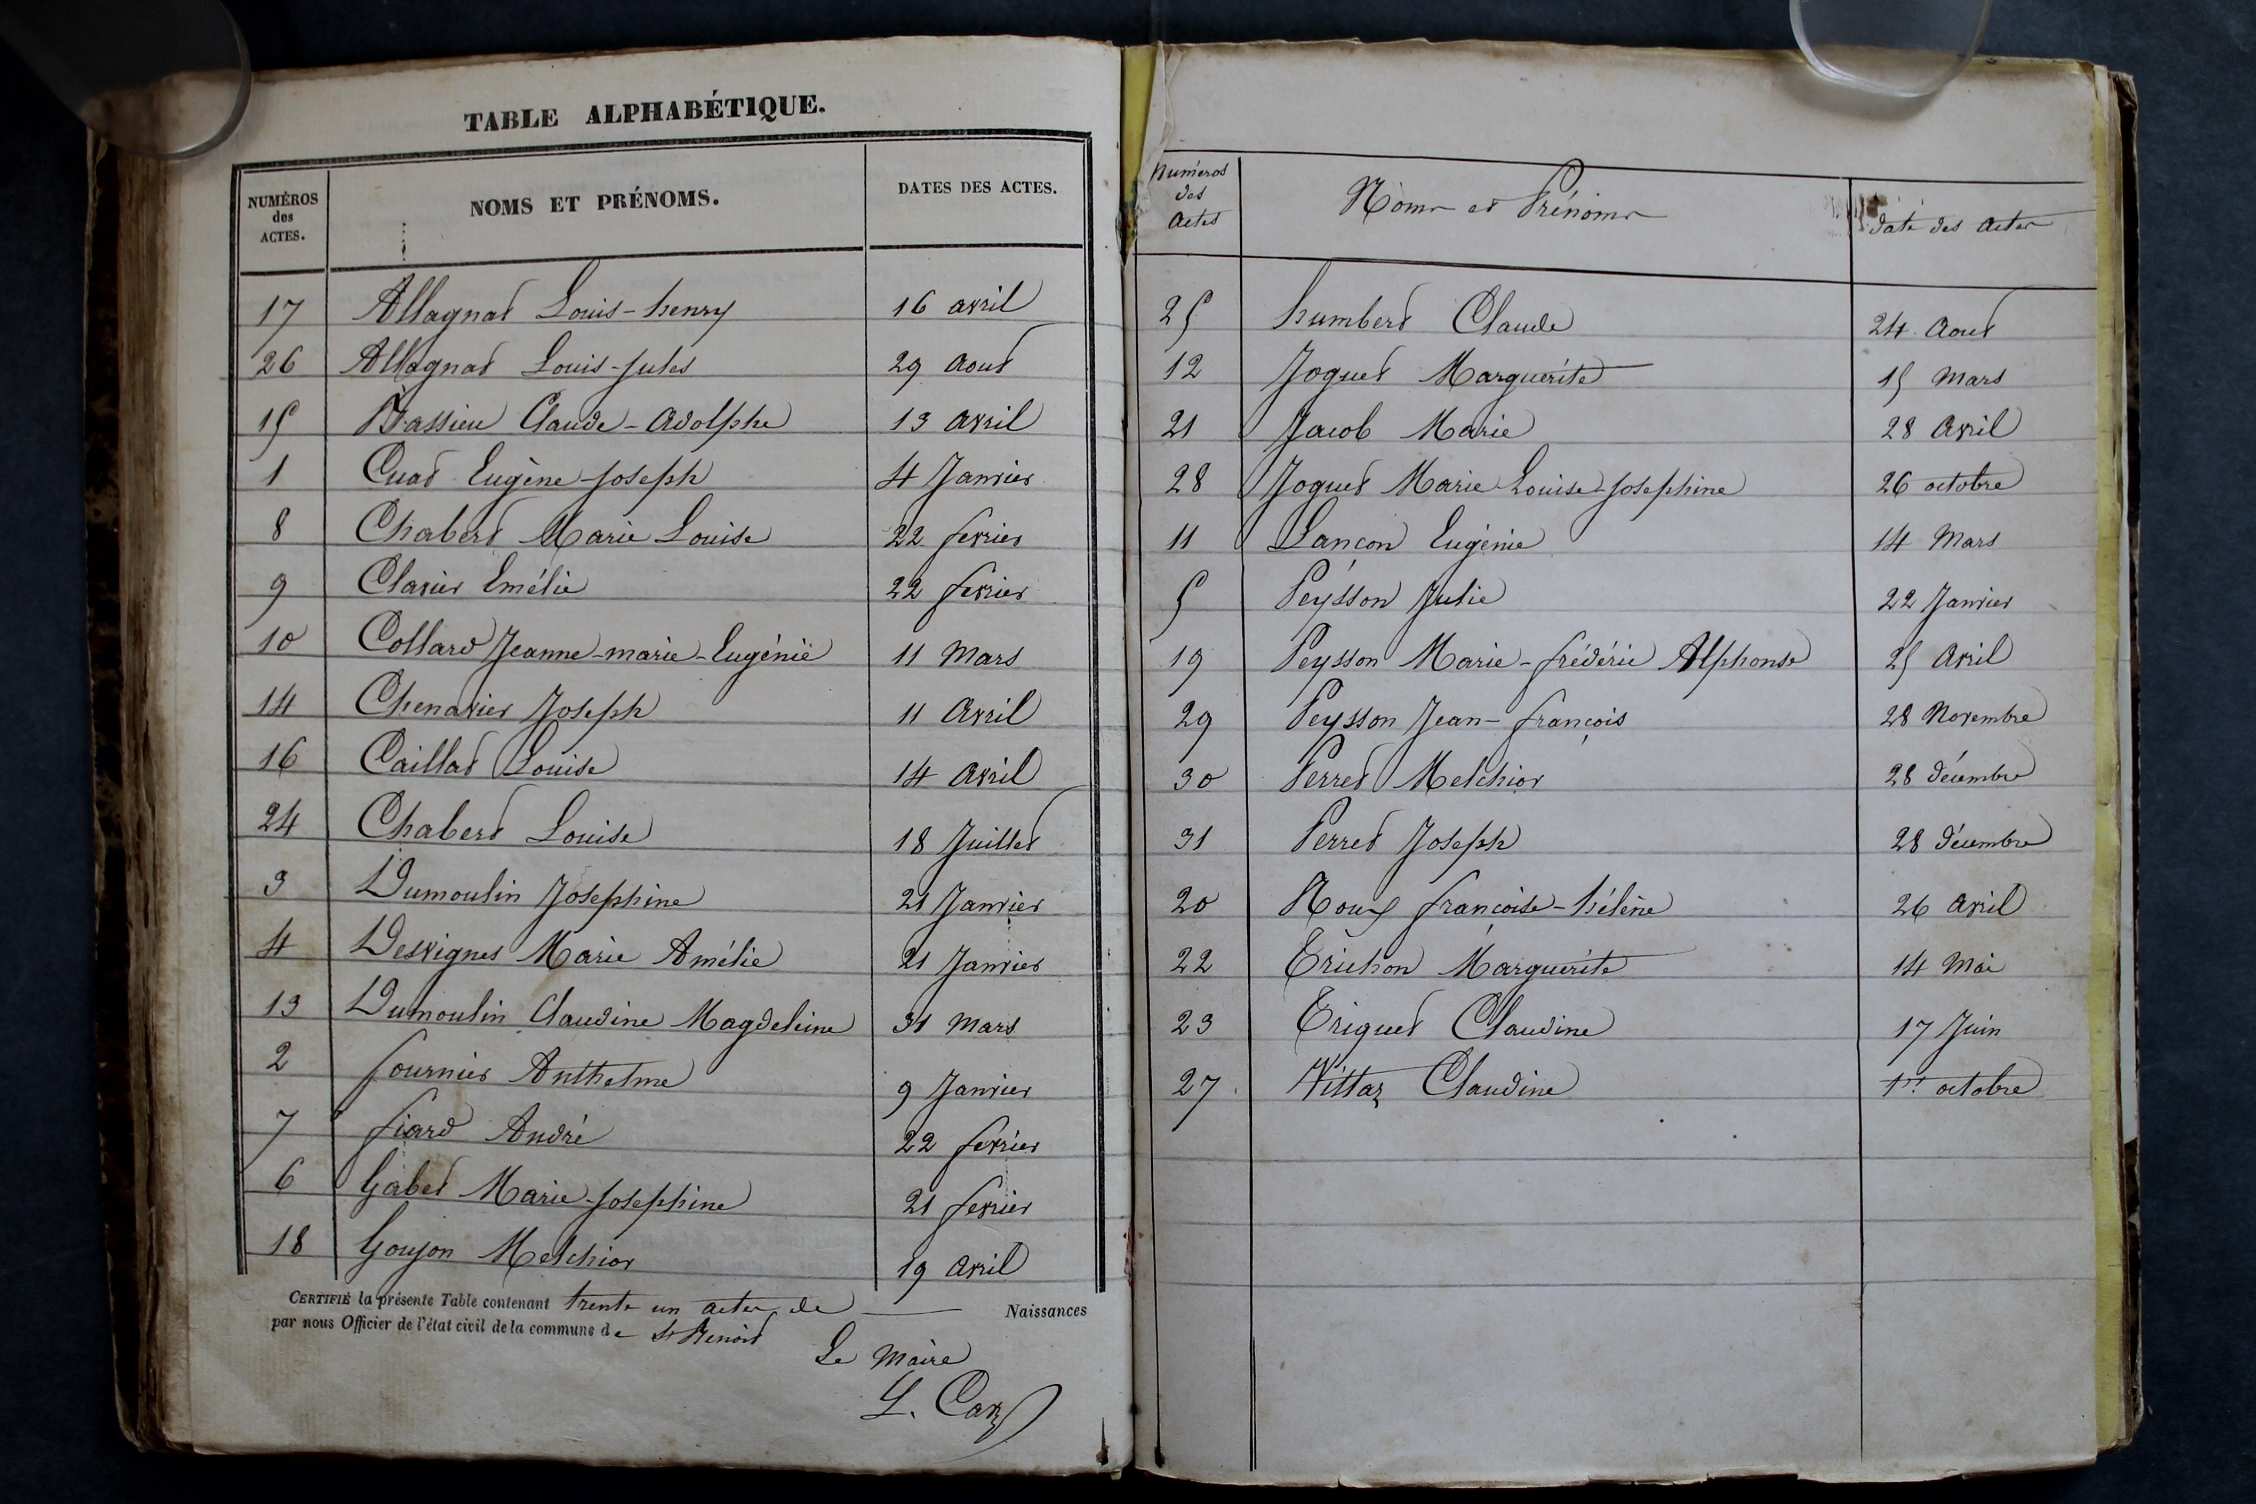 TABLE ALPHABÉTIQUE.
NUMÉROS des ACTES. NOMS ET PRÉNOMS. DATES DES ACTES.
17 Allagnat Louis-henry 16 avril
26 Allagnat Louis-Jules 29 Aout
15 Bassieu Claude-Adolphe 13 Avril
1 Cuat Eugène-Joseph 4 Janvier
8 Chabert Marie Louise 22 fevrier
9 Clavier Emélie 22 fevrier
10 Collard Jeanne-marie-Eugénie 11 Mars
14 Chenavier Joseph 11 Avril
16 Caillat Louise 14 Avril
24 Chabert Louise 18 Juillet
3 Dumoulin Josephine 21 Janvier
4 Desvignes Marie Amélie 21 Janvier
13 Dumoulin Claudine Magdeleine 31 Mars
2 fournier Anthelme 9 Janvier
7 fiard André 22 fevrier
6 Gabet Marie-Josephine 21 fevrier
18 Goujon Melchior 19 Avril
CERTIFIÉ la présente Table contenant trente un actes de Naissances
par nous Officier de l'état civil de la commune de St Benoit
Le Maire
Numéros des Actes Noms et Prénoms date des Actes
25 humbert Claude 24 Aout
12 Joguet Marguerite 15 Mars
21 Jacob Marie 28 Avril
28 Joguet Marie-Louise-Josephine 26 octobre
11 Lançon Eugénie 14 Mars
5 Peysson Julie 22 Janvier
19 Peysson Marie-frédéric Alphonse 25 Avril
29 Peysson Jean-françois 28 Novembre
30 Perret Melchior 28 décembre
31 Perret Joseph 28 décembre
20 Roux françoise-hélène 26 Avril
22 Trichon Marguerite 14 Mai
23 Triquet Claudine 17 Juin
27 Vittaz Claudine 1er octobre